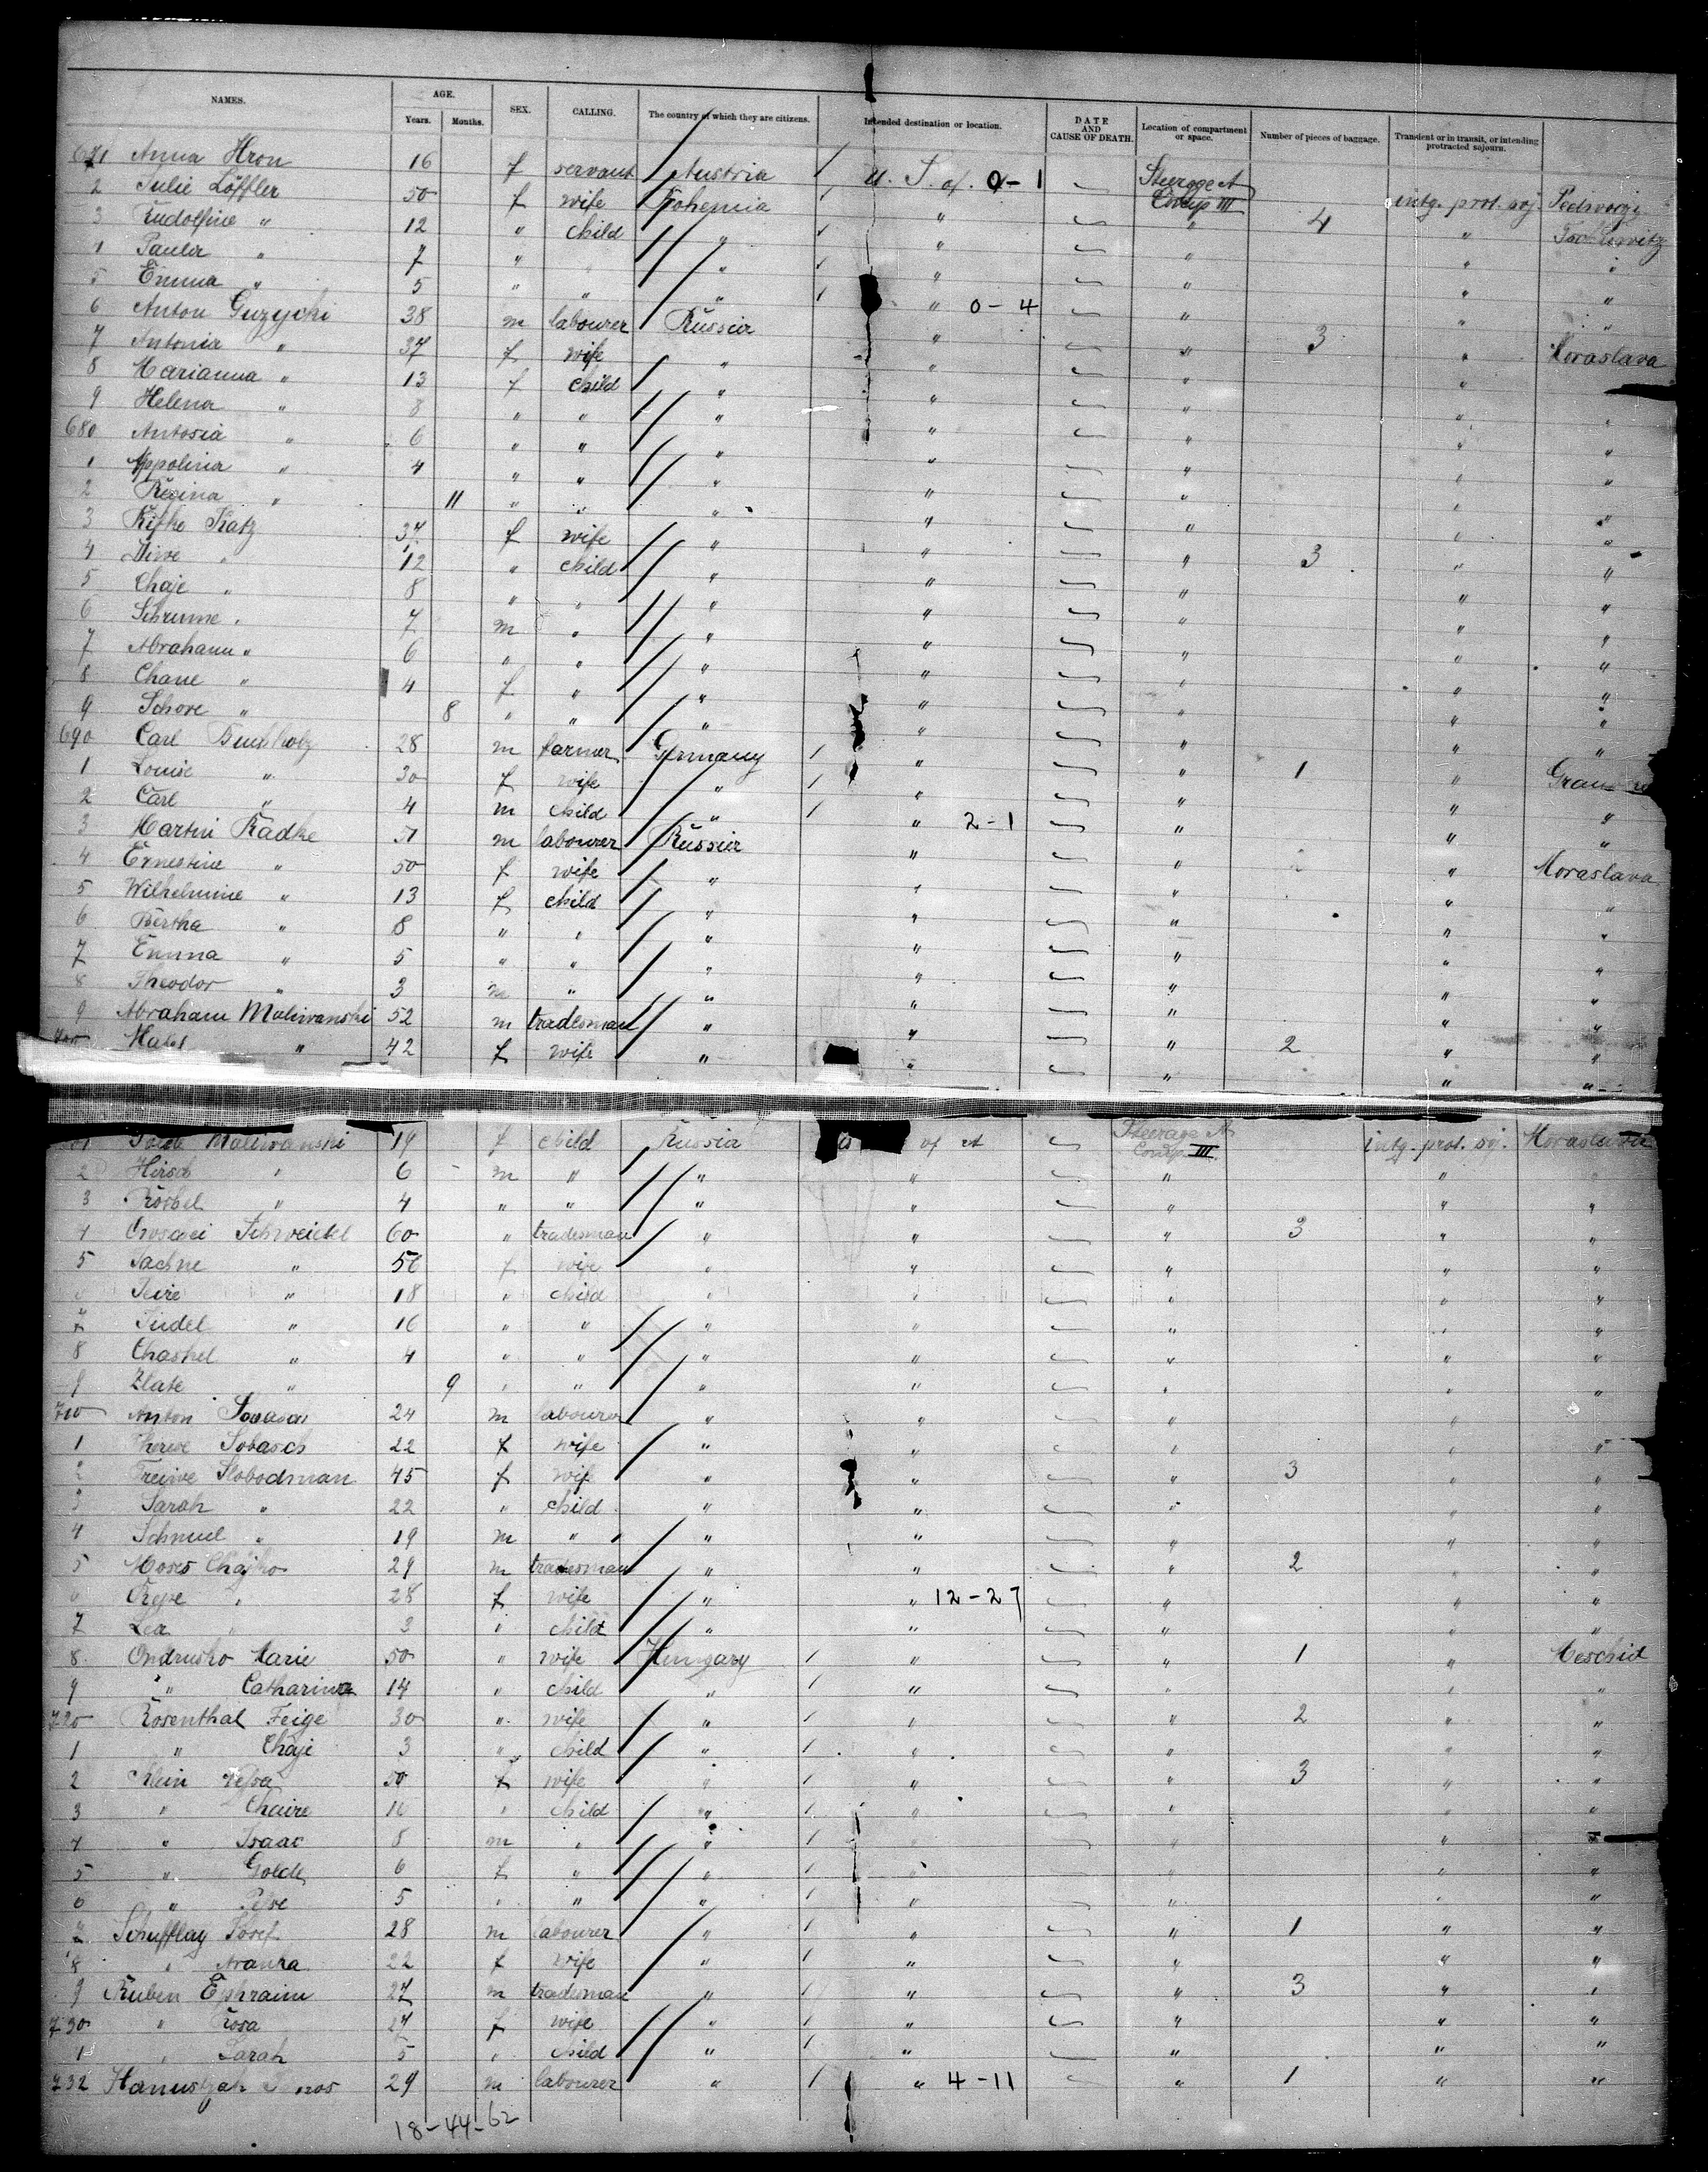 NAMES. AGE. SEX. CALLING. The country of which they are citizens. Intended destination or location. DATE AND CAUSE OF DEATH. Location of compartment or space. Number of pieces of baggage. Transient or in transit, or intending protracted sojourn.
Years. Months.
671 Anna Hron 16 f servant Austria U. S. of 0-1 Steerage A Comp III intg. prot. soj.
2 Julie Löffler 50 f wife Bohemia " " 4 "
3 Rudolfine " 12 " child " " " "
4 Paula " 7 " " " " " " "
5 Emma " 5 " " " " 0-4 " " "
6 Anton Guzycki 38 m labourer Russia " " 3 " Moraslava
7 Antonia " 37 f wife " " " " "
8 Marianna " 13 f child " " " " "
9 Helena " 8 " " " " " " "
680 Antosia " 6 " " " " " " "
1 Appolina " 4 " " " " " " "
2 Regina " 11 " " " " " " "
3 Rifke Katz 37 f wife " " " 3 " "
4 " 12 " child " " " " "
5 Chaje " 8 " " " " " " "
6 Schrume " 7 m " " " " " "
7 Abraham " 6 " " " " " " "
8 Chane " 4 f " " " " " "
9 Schore " 8 " " " " " " "
690 Carl Buchholz 28 m farmer Germany " " 1 "
1 Louise " 30 f wife " " " " "
2 Carl " 4 m child " " 2-1 " " "
3 Martin Radke 51 m labourer Russia " " " Moraslava
4 Ernestine " 50 f wife " " " " "
5 Wilhelmine " 13 f child " " " " "
6 Bertha " 8 " " " " " " "
7 Emma " 5 " " " " " " "
8 Theodor " 3 m " " " " " "
9 Abraham Maliwanski 52 m tradesman " " " 2 " "
" 42 f wife " " " " "
Maliwanski 19 f child Russia of A Steerage A Comp. III intg. prot. soj. Moraslava
2 Hirsch " 6 m " " " " " "
3 " 4 " " " " " " "
4 Schweidel 60 " tradesman " " " 3 " "
5 Sachne " 56 f wife " " " " "
" 18 " child " " " " "
7 Judel " 16 " " " " " " "
8 Chashel " 4 " " " " " " "
9 Zlate " 9 " " " " " " "
710 Anton 24 m labourer " " " " "
1 Sobasch 22 f wife " " " " "
2 Slobodman 45 f wife " " " 3 " "
3 Sarah " 22 " child " " " " "
4 Schmul " 19 m " " " " " "
5 Moses Chajko 29 m tradesman " " " 2 " "
" 28 f wife " " 12-27 " " "
7 Lea " 3 " child " " " " "
8 Ondrusko Marie 50 " wife Hungary " " 1 "
9 " Catharina 14 " child " " " " "
720 Rosenthal Feige 30 " wife " " " 2 " "
1 " Chaje 3 " child " " " " "
2 Klein 50 f wife " " " 3 " "
3 " Chaire 10 " child " " " " "
4 " Isaac 8 m " " " " "
5 " Golde 6 f " " " " " "
6 " 5 " " " " " " "
7 Schufflay Josef 28 m labourer " " " 1 " "
8 " 22 f wife " " " " "
9 Ruben Ephraim 27 m tradesman " " " 3 " "
730 " Rosa 27 f wife " " " " "
1 " Sarah 5 " child " " " " "
732 29 m labourer " " 4-11 " 1 " "
18-44-62